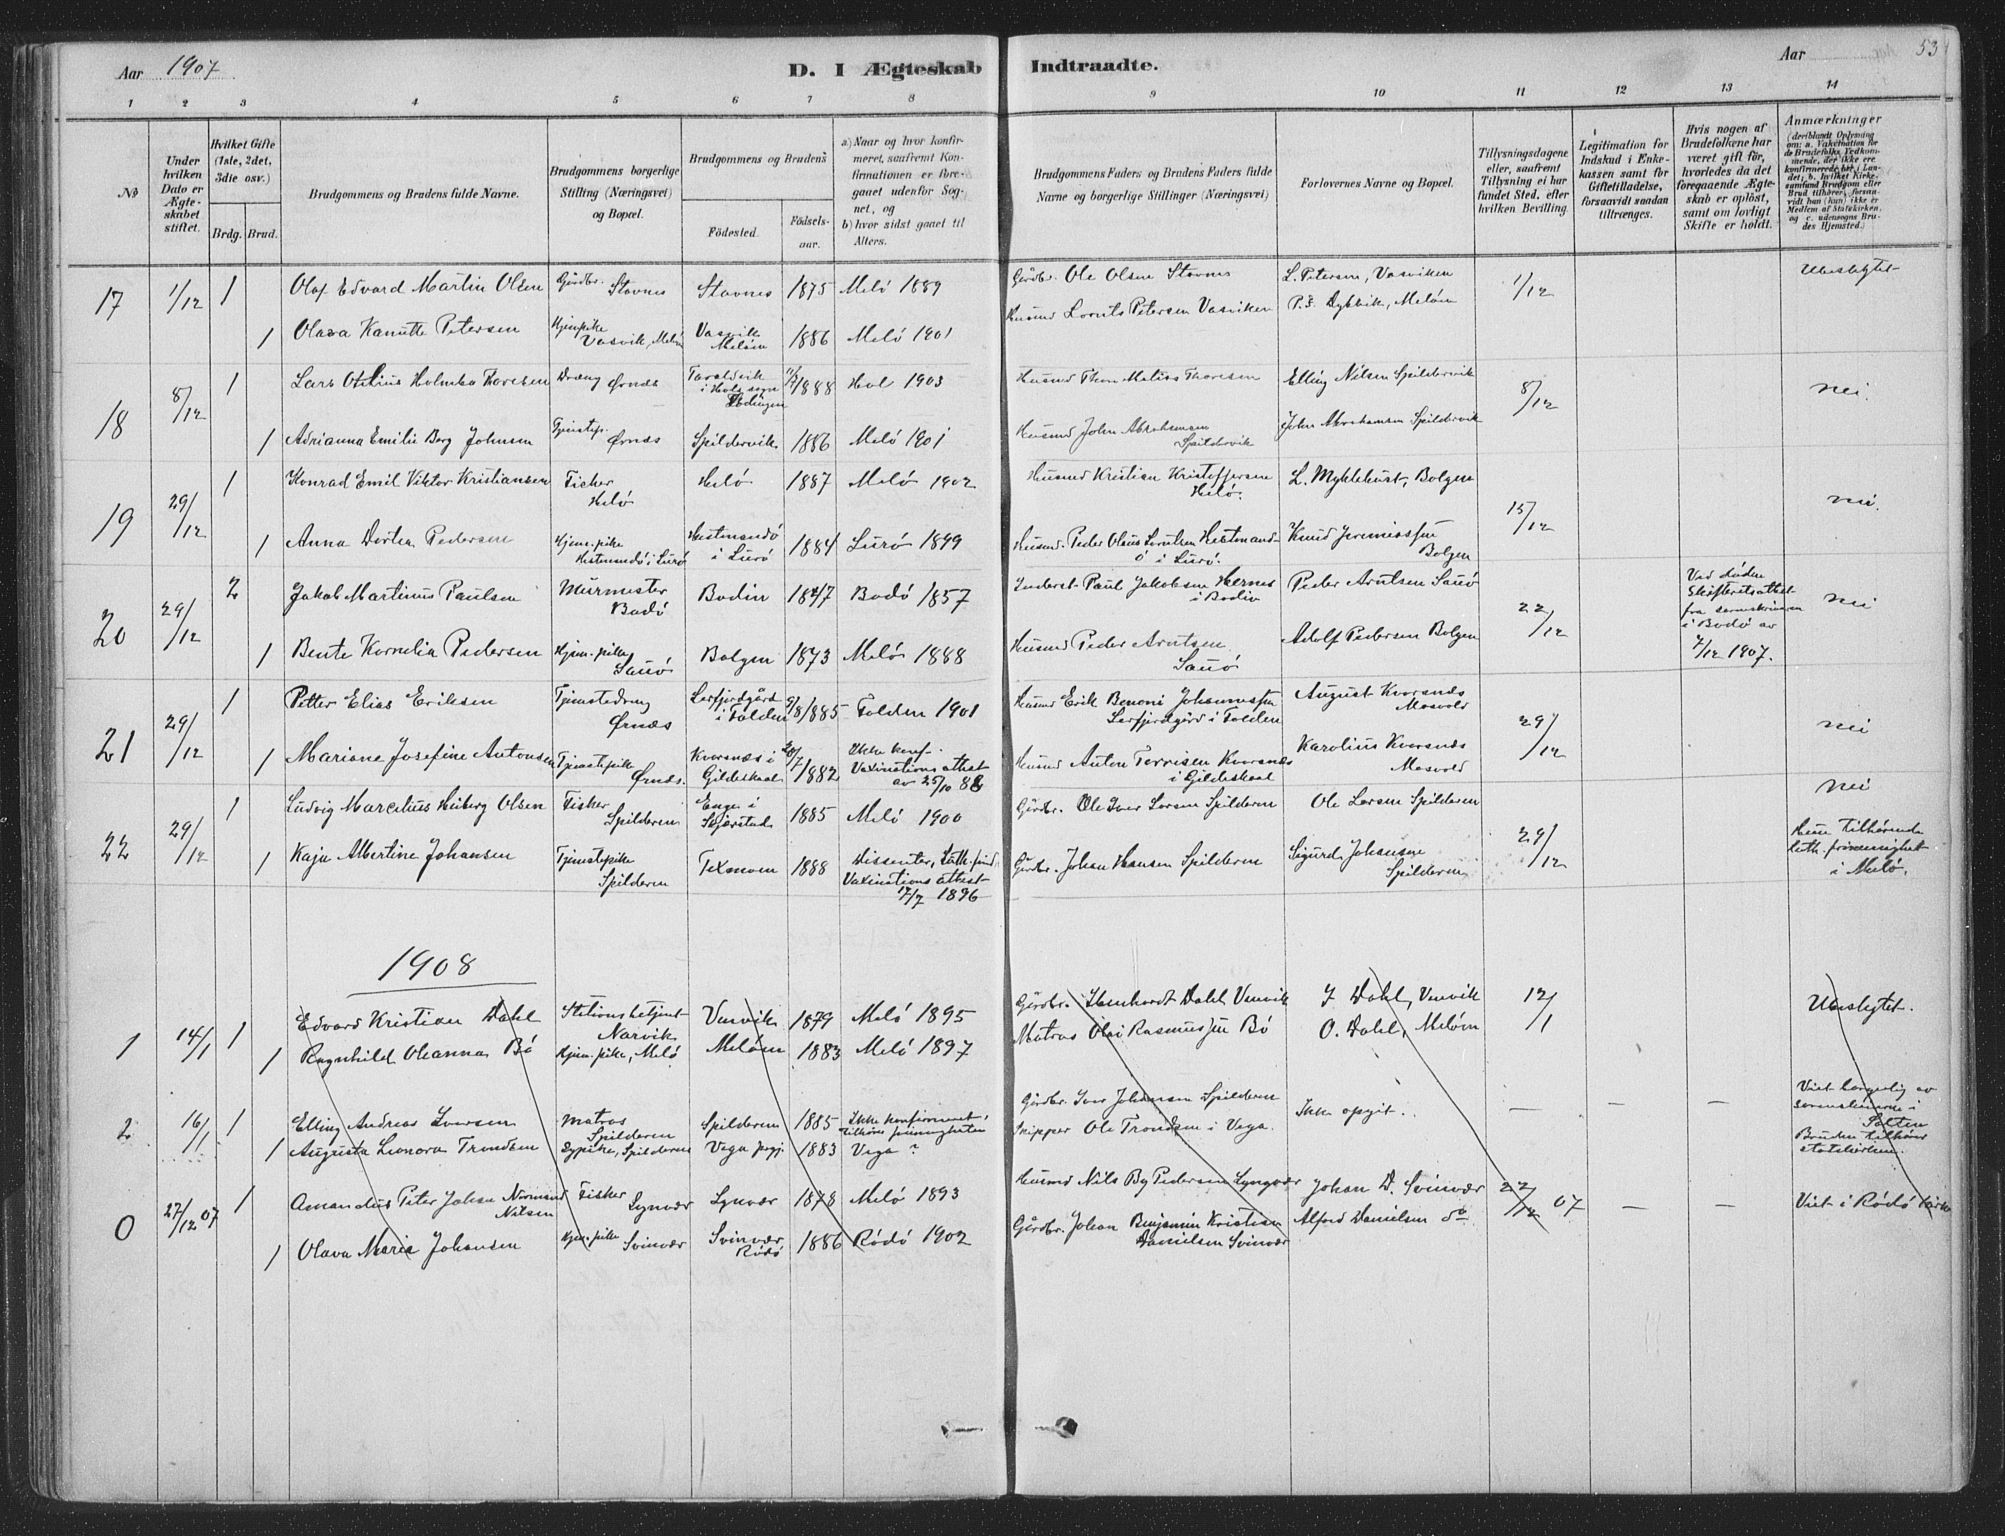 Aar 1907 D. I Ægteskab Indtraadte. Aar 53
1 2 3 4 5 6 7 8 9 10 11 12 13 14
№
Under hvilken Dato er Ægteskabet stiftet.
Hvilket Gifte (1ste, 2det, 3die osv.)
Brdg. Brud.
Brudgommens og Brudens fulde Navne.
Brudgommens borgerlige Stilling (Næringsvei) og Bopæl.
Brudgommens og Brudens
Fødested.
Fødselsaar.
a) Naar og hvor konfirmeret, saafremt Konfirmationen er foregaaet udenfor Sognet, og
b) hvor sidst gaaet til Alters.
Brudgommens Faders og Brudens Faders fulde Navne og borgerlige Stillinger (Næringsvei)
Forlovernes Navne og Bopæl.
Tillysningsdagene eller, saafremt Tillysning ei har fundet Sted, efter hvilken Bevilling.
Legitimation for Indskud i Enkekassen samt for Giftetilladelse, forsaavidt saadan tiltrænges.
Hvis nogen af Brudefolkene har været gift før, hvorledes da det foregaaende Ægteskab er opløst, samt om lovligt Skifte er holdt.
Anmærkninger
17 1/12 1 Olaf Edvard Martin Olsen Gårdbr. Stavnes Stavnes 1875 Melö 1889 Gårdbr. Ole Olsen Stavnes L. Petersen, Vasviken 1/12 Ubeslegtet
P. S. Dybvik, Melöen
1 Olava Kanutte Petersen Hjem.pike Vasvik, Melöen Vasvik Melöen 1886 Melö 1901 Husmd Lornts Petersen Vasviken
18 8/12 1 Lars Otelius Holmbo Thoresen Dræng Ørnes Taraldvik i Hols sogn Lödingen 11/7 1888 Hol 1903 Husmd Thore Matias Thoresen Elling Nilsen Spildervik 8/12 nei.
1 Adrianna Emilie Berg Johnsen Tjenestep. Ørnes Spildervik 1886 Melö 1901 Husmd John Abrahamsen Spildervik John Abrahamsen Spildervik
19 29/12 1 Konrad Emil Viktor Kristiansen Fisker Helö Helö 1887 Melö 1902 Husmd Kristian Kristoffersen Helö. L. Myklebust, Bolgen 15/12 nei.
1 Anna Dortea Pedersen Hjem.pike Hestmandö i Lurö Hestmandö i Lurö 1884 Lurö 1899 Husmd. Peder Olaus Lornthsen Hestmandö i Lurö. Knud Jeremiassen Bolgen
20 29/12 2 Jakob Martinus Paulsen Murmester Bodö Bodin 1847 Bodö 1857 Inderst Paul Jakobsen Hernes i Bodin Peder Arntsen Sauö 22/12 Ved döden Skifteretsattest fra sorenskriveren i Bodö av 7/12 1907. nei
1 Bente Kornelia Pedersen Hjem.pike Sauö Bolgen 1873 Melö 1888 Husmd Peder Arntsen Sauö Adolf Pedersen Bolgen
21 29/12 1 Petter Elias Eriksen Tjenestedreng Ørnæs Lerfjordgård i Folden 9/8 1885 Folden 1901 Husmd Erik Benoni Johannessen Lerfjordgård i Folden August Kvarsnæs Mosvold 29/12 nei
1 Mariane Josefine Antonsen Tjenestepike Ørnæs. Kvarsnæs i Gildeskaal 28/7 1882 Ikke konf. Vaxinations attest av 25/10 88 Husmd Anton Terrisen Kvarsnæs i Gildeskaal Karolius Kvarsnæs Mosvold
22 29/12 1 Ludvig Marcelius Heiberg Olsen Fisker Spilderen Enge i Skjerstad 1885 Melö 1900 Gårdbr. Ole Iver Larsen Spilderen Ole Larsen Spilderen 29/12 nei
1 Kaja Albertine Johansen Tjenestepike Spilderen Texmoen 1888 Dissenter, Luth. frind. Vaxinations attest 17/7 1896 Gårdbr. Johan Hansen Spilderen Sigurd Johansen Spilderen Hun tilhörende luth. frimenighet i Melö.
1908
1 14/1 1 Edvard Kristian Dahl Stationsbetjent Narvik Venvik 1879 Melö 1895 Gårdbr. Ibenhardt Dahl Venvik J. Dahl, Venvik 12/1 Ubeslegtet.
1 Ragnhild Oleanna Bö Hjem.pike, Melö Melöen 1883 Melö 1897 Matros Olai Rasmussen Bö O. Dahl, Melöen
2 16/1 1 Elling Andreas Iversen Matros Spilderen Spilderen 1885 Ikke konfirmeret, tilhörer frimenigheten Gårdbr. Iver Johansen Spilderen Ikke opgit. — — — Viet borgerlig av sorenskriveren i Salten
1 Augusta Leonora Trondsen Sypike, Spilderen Vega prgj. 1883 Vega ? Skipper Ole Trondsen i Vega. Bruden tilhörer statskirken.
0 27/12 07 1 Amandus Peter Johan Normand Nilsen Fisker Lynvær Lynvær 1878 Melö 1893 Husmd Nils By Pedersen Lyngvær Johan D. Svinvær 22/12 07 — — Viet i Rödö kirke
1 Olava Marie Johansen Hjem.pike Svinvær Svinvær Rödö 1886 Rödö 1902 Gårdbr. Johan Benjamin Kristian Danielsen Svinvær Alfred Danielsen do